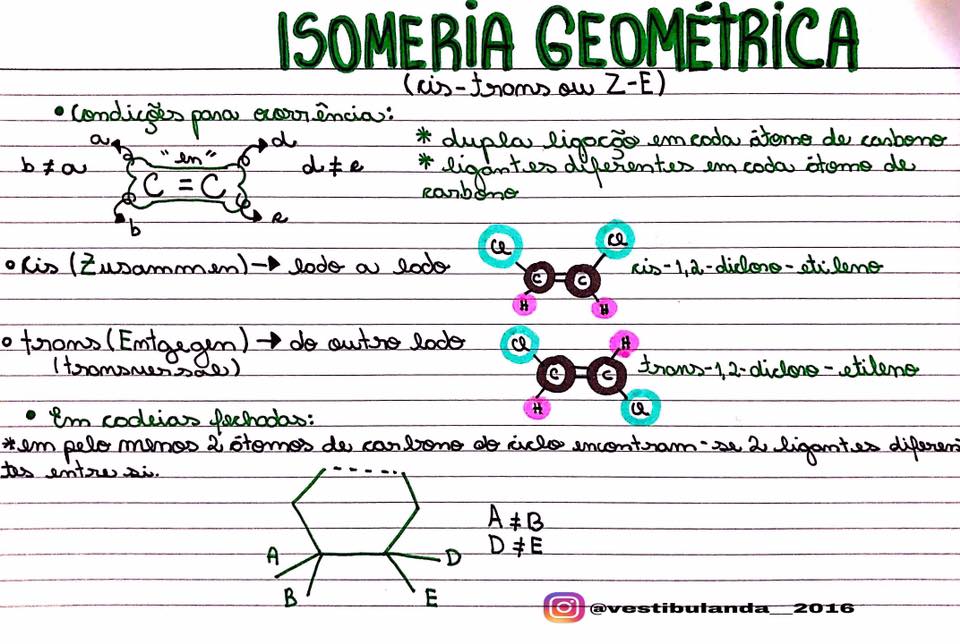 ISOMERIA GEOMÉTRICA
(cis-trans ou Z-E)
• Condições para ocorrência:
a d
"en"
b ≠ a C = C d ≠ e
b e
* dupla ligação em cada átomo de carbono
* ligantes diferentes em cada átomo de
carbono
• Cis (Zusammen) → lado a lado
Cl Cl
C C
H H
cis-1,2-dicloro-etileno
• trans (Entgegen) → do outro lado
(transversal)
Cl H
C C
H Cl
trans-1,2-dicloro-etileno
• Em cadeias fechadas:
*em pelo menos 2 átomos de carbono do ciclo encontram-se 2 ligantes diferen
tes entre si.
A D
B E
A ≠ B
D ≠ E
@vestibulanda__2016